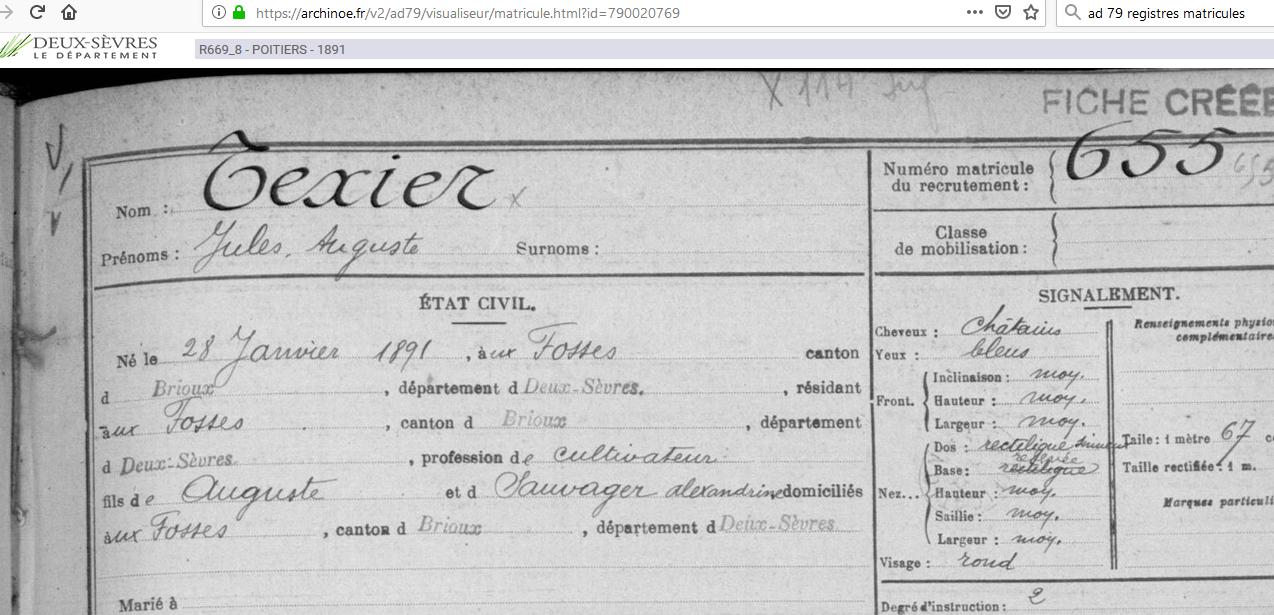 https://archinoe.fr/v2/ad79/visualiseur/matricule.html?id=790020769
ad 79 registres matricules
DEUX-SÈVRES
LE DÉPARTEMENT
R669_8 - POITIERS - 1891
X 114
FICHE CRÉÉE
Nom : Texier x
Numéro matricule du recrutement : 655 655
Prénoms : Jules, Auguste Surnoms :
Classe de mobilisation :
ÉTAT CIVIL.
Né le 28 Janvier 1891, à ux Fosses canton
d Brioux, département d Deux-Sèvres., résidant
à ux Fosses, canton d Brioux, département
d Deux-Sèvres, profession de cultivateur
fils de Auguste et d Sauvager alexandrine domiciliés
à ux Fosses, canton d Brioux, département d Deux-Sèvres
Marié à
SIGNALEMENT.
Cheveux : châtains
Yeux : bleus
Front. Inclinaison : moy.
Hauteur : moy.
Largeur : moy.
Nez... Dos : rectiligne sinueux
relevée
Base : rectiligne
Hauteur : moy.
Saillie : moy.
Largeur : moy.
Visage : rond
Degré d'instruction : 2
Renseignements physio
complémentaire
Taille : 1 mètre 67 c
Taille rectifiée : 1 m.
Marques particuli